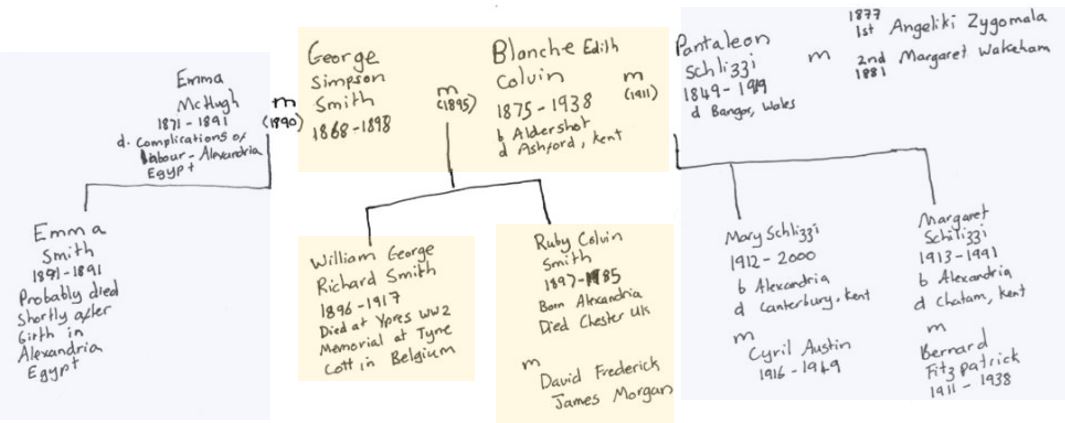 Emma
McHugh
1871-1891
d. Complications of
labour - Alexandria
Egypt
m
(1890)
George
Simpson
Smith
1868-1898
m
(1895)
Blanche Edith
Colvin
1875-1938
b Aldershot
d Ashford, Kent
m
(1911)
Pantaleon
Schlizzi
1849-1919
d Bangor, Wales
m
1877
1st Angeliki Zygomala
2nd Margaret Wakeham
1881
Emma
Smith
1891-1891
Probably died
Shortly after
birth in
Alexandria
Egypt
William George
Richard Smith
1896-1917
Died at Ypres WW2
Memorial at Tyne
Cott in Belgium
Ruby Colvin
Smith
1897-1985
Born Alexandria
Died Chester UK
m
David Frederick
James Morgan
Mary Schlizzi
1912-2000
b Alexandria
d Canterbury, Kent
m
Cyril Austin
1916-1949
Margaret
Schilizzi
1913-1991
b Alexandria
d Chatam, Kent
m
Bernard
Fitzpatrick
1911-1938